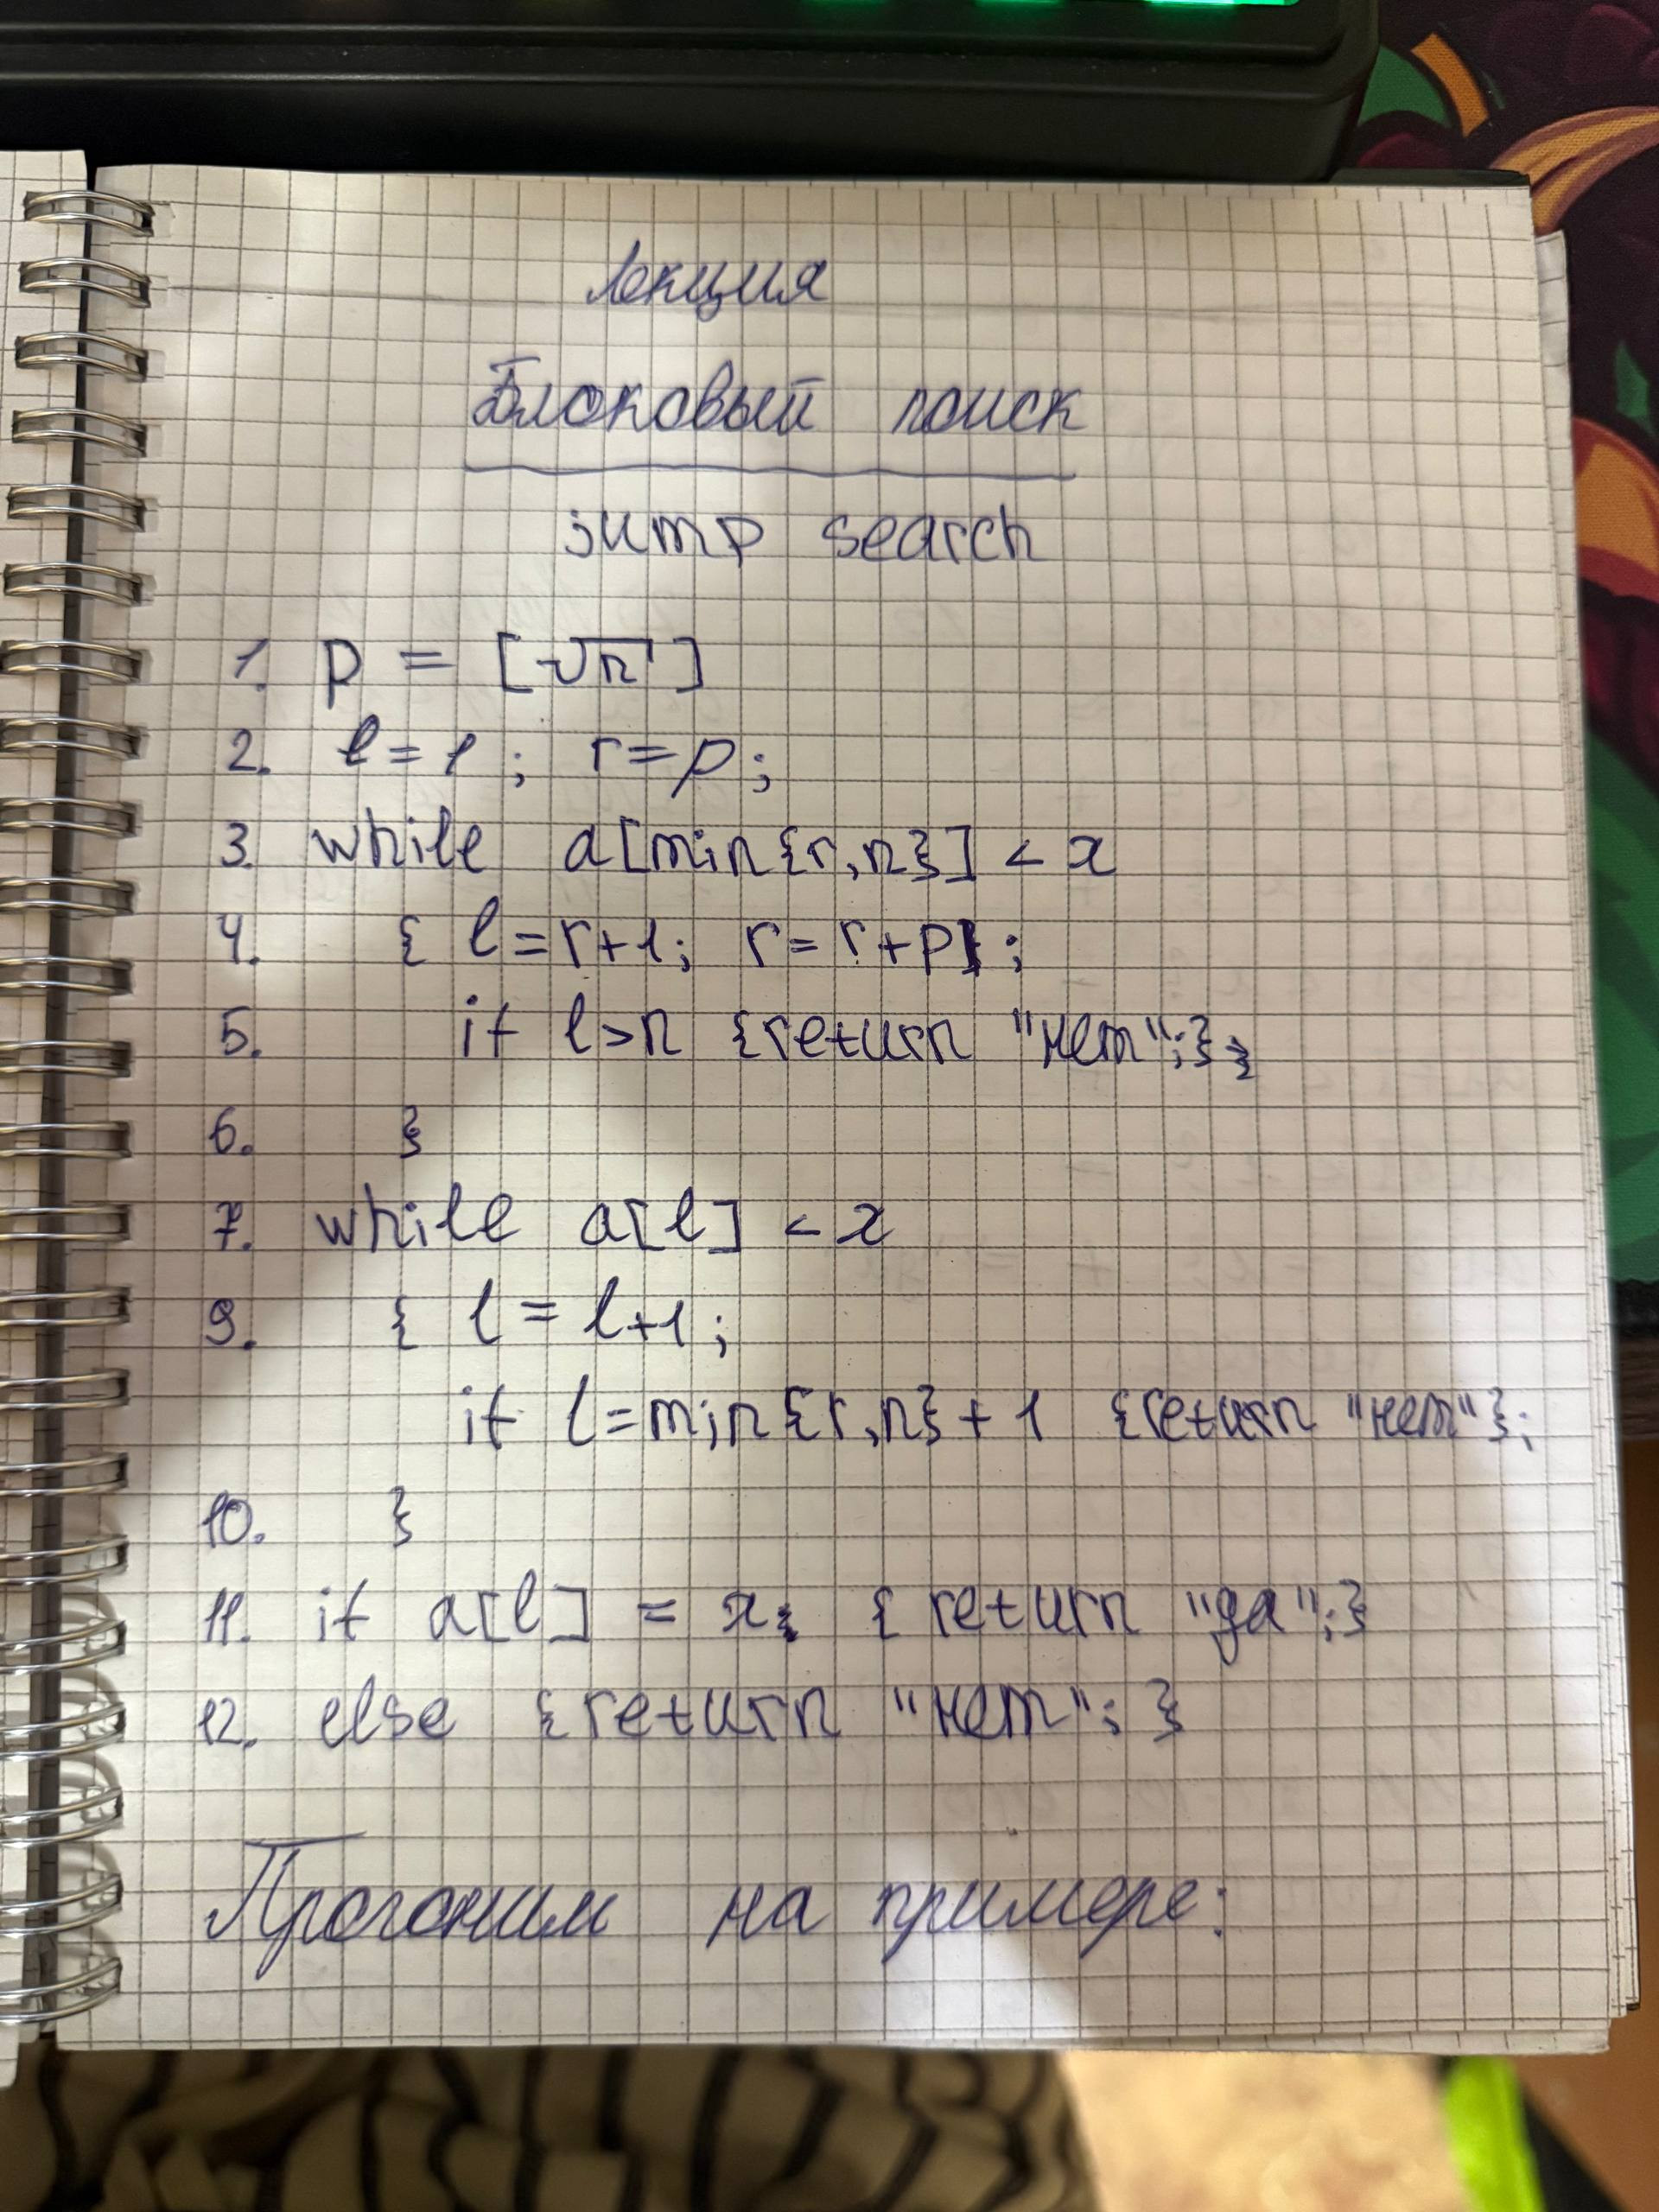 Лекция
Блоковый поиск
jump search
1. p = [√n]
2. l=1; r=p;
3. while a[min{r,n}] < x
4. { l=r+1; r=r+p;
5. if l>n {return "нет";};
6. }
7. while a[l] < x
9. { l = l+1;
if l=min{r,n}+1 {return "нет"};
10. }
11. if a[l] = x { return "да";}
12. else {return "нет"; }
Прогоним на примере: